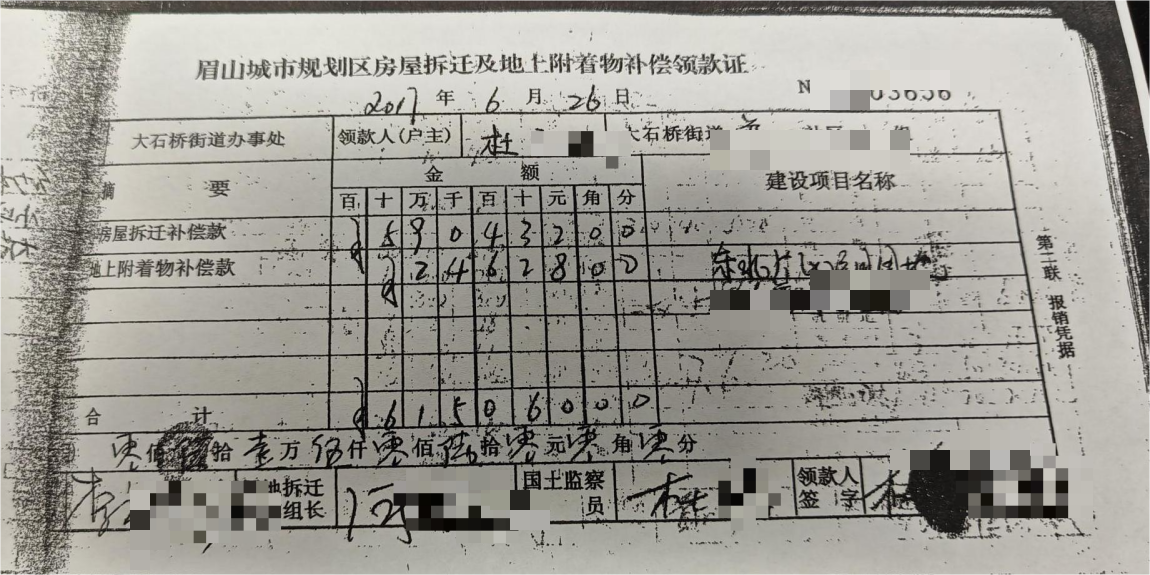 眉山城市规划区房屋拆迁及地上附着物补偿领款证
2017年6月26日 N 03656
大石桥街道办事处 领款人(户主) 杜 大石桥街道
摘要 金额 建设项目名称
百 十 万 千 百 十 元 角 分
房屋拆迁补偿款 5 9 0 4 3 2 0 0
地上附着物补偿款 2 4 6 2 8 0 0
合计 6 1 5 0 6 0 0 0
零佰 拾壹万伍仟零佰陆拾零元零角零分
地拆迁组长 国土监察员 杜 领款人签字 杜
第二联 报销凭据